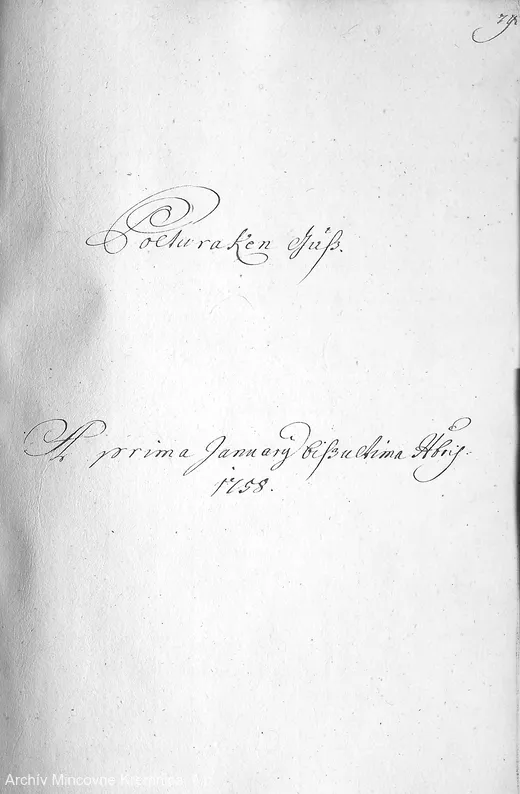 Polturaken Güß.
A prima January biß ultima Xbris
1758.
Archiv Mincovne Kremnica